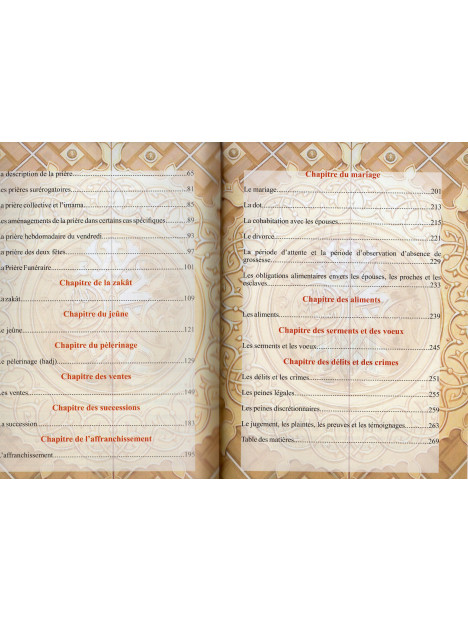 La description de la prière 65
Les prières surérogatoires 81
La prière collective et l'imama 85
Les aménagements de la prière dans certains cas spécifiques 89
La prière hebdomadaire du vendredi 93
La prière des deux fêtes 97
La Prière Funéraire 101
Chapitre de la zakât
La zakât 109
Chapitre du jeûne
Le jeûne 121
Chapitre du pèlerinage
Le pèlerinage (hadj) 129
Chapitre des ventes
Les ventes 149
Chapitre des successions
La succession 183
Chapitre de l'affranchissement
L'affranchissement 195
Chapitre du mariage
Le mariage 201
La dot 213
La cohabitation avec les épouses 215
Le divorce 221
La période d'attente et la période d'observation d'absence de
grossesse 229
Les obligations alimentaires envers les épouses, les proches et les
esclaves 233
Chapitre des aliments
Les aliments 239
Chapitre des serments et des voeux
Les serments et les voeux 245
Chapitre des délits et des crimes
Les délits et les crimes 251
Les peines légales 255
Les peines discrétionnaires 259
Le jugement, les plaintes, les preuves et les témoignages 263
Table des matières 269